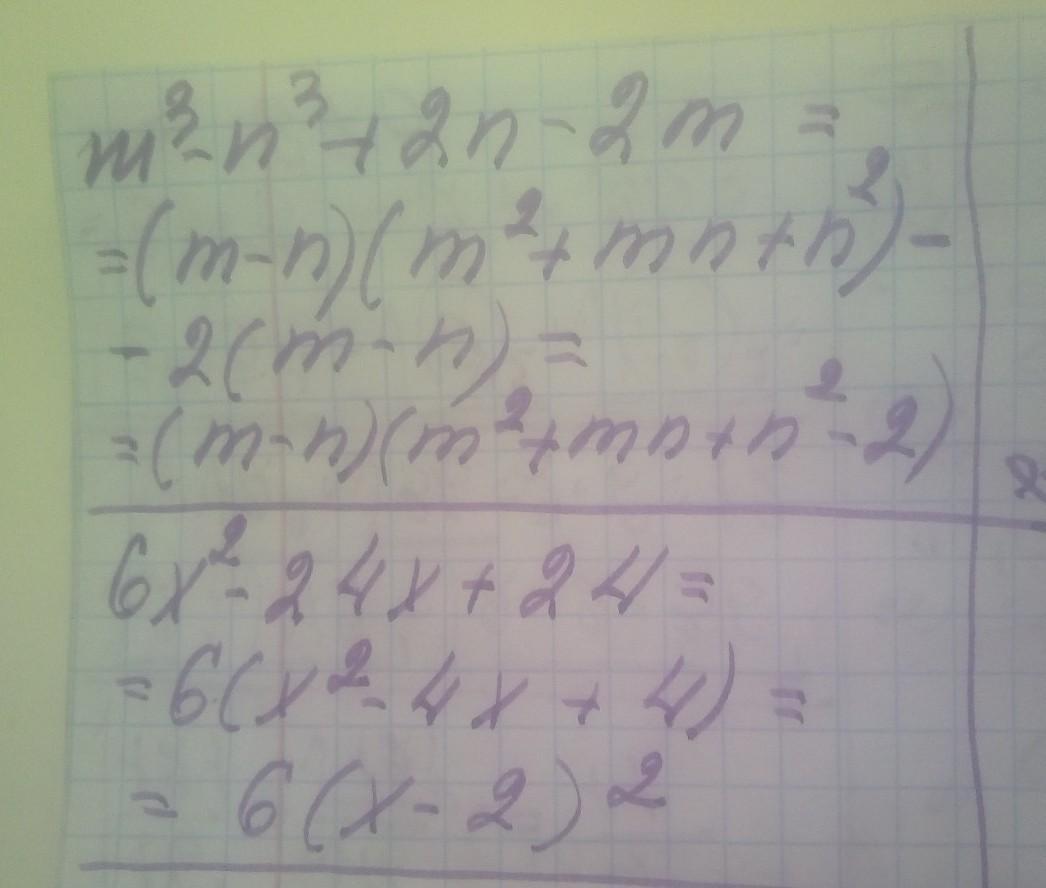 m³-n³+2n-2m=
=(m-n)(m²+mn+n²)-
-2(m-n)=
=(m-n)(m²+mn+n²-2)
6x²-24x+24=
=6(x²-4x+4)=
=6(x-2)²